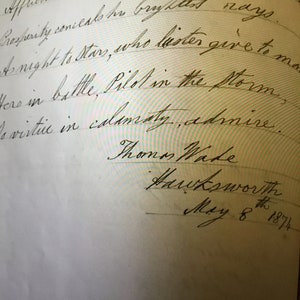 Affluen
Prosperity conceals his brightest rays.
As night to Stars, who luster give to man
Hero in battle, Pilot in the Storm,
So virtue in calamaty, admire.
Thomas Wade
Hawksworth
May 8th 1874